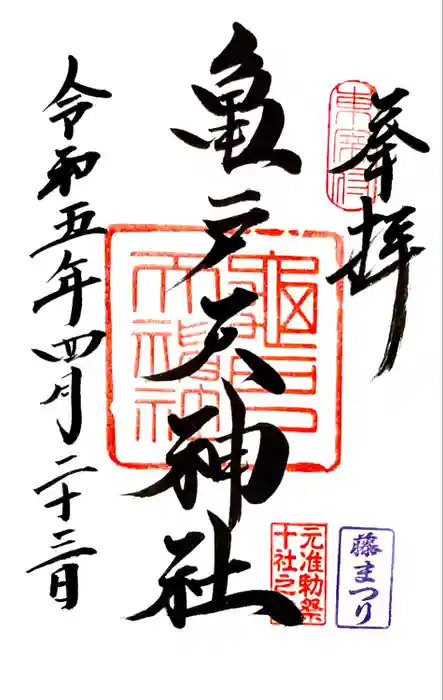 奉拝
東宰府
亀戸天神社
亀戸天神社
令和五年四月二十三日
元准勅祭
十社之
藤まつり